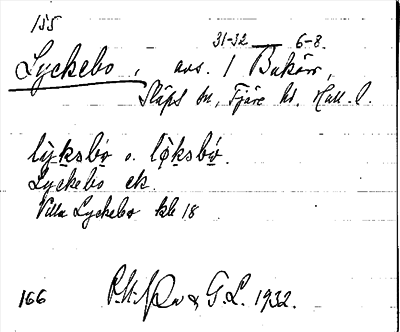 155
31-32 — 6-8.
Lyckebo, avs. / Bukärr,
Släps sn, Fjäre hd. Hall. l.
lỳksbo o. lòksbo.
Lyckebo ek.
Villa Lyckebo kbl 18
166 & G.L. 1932.